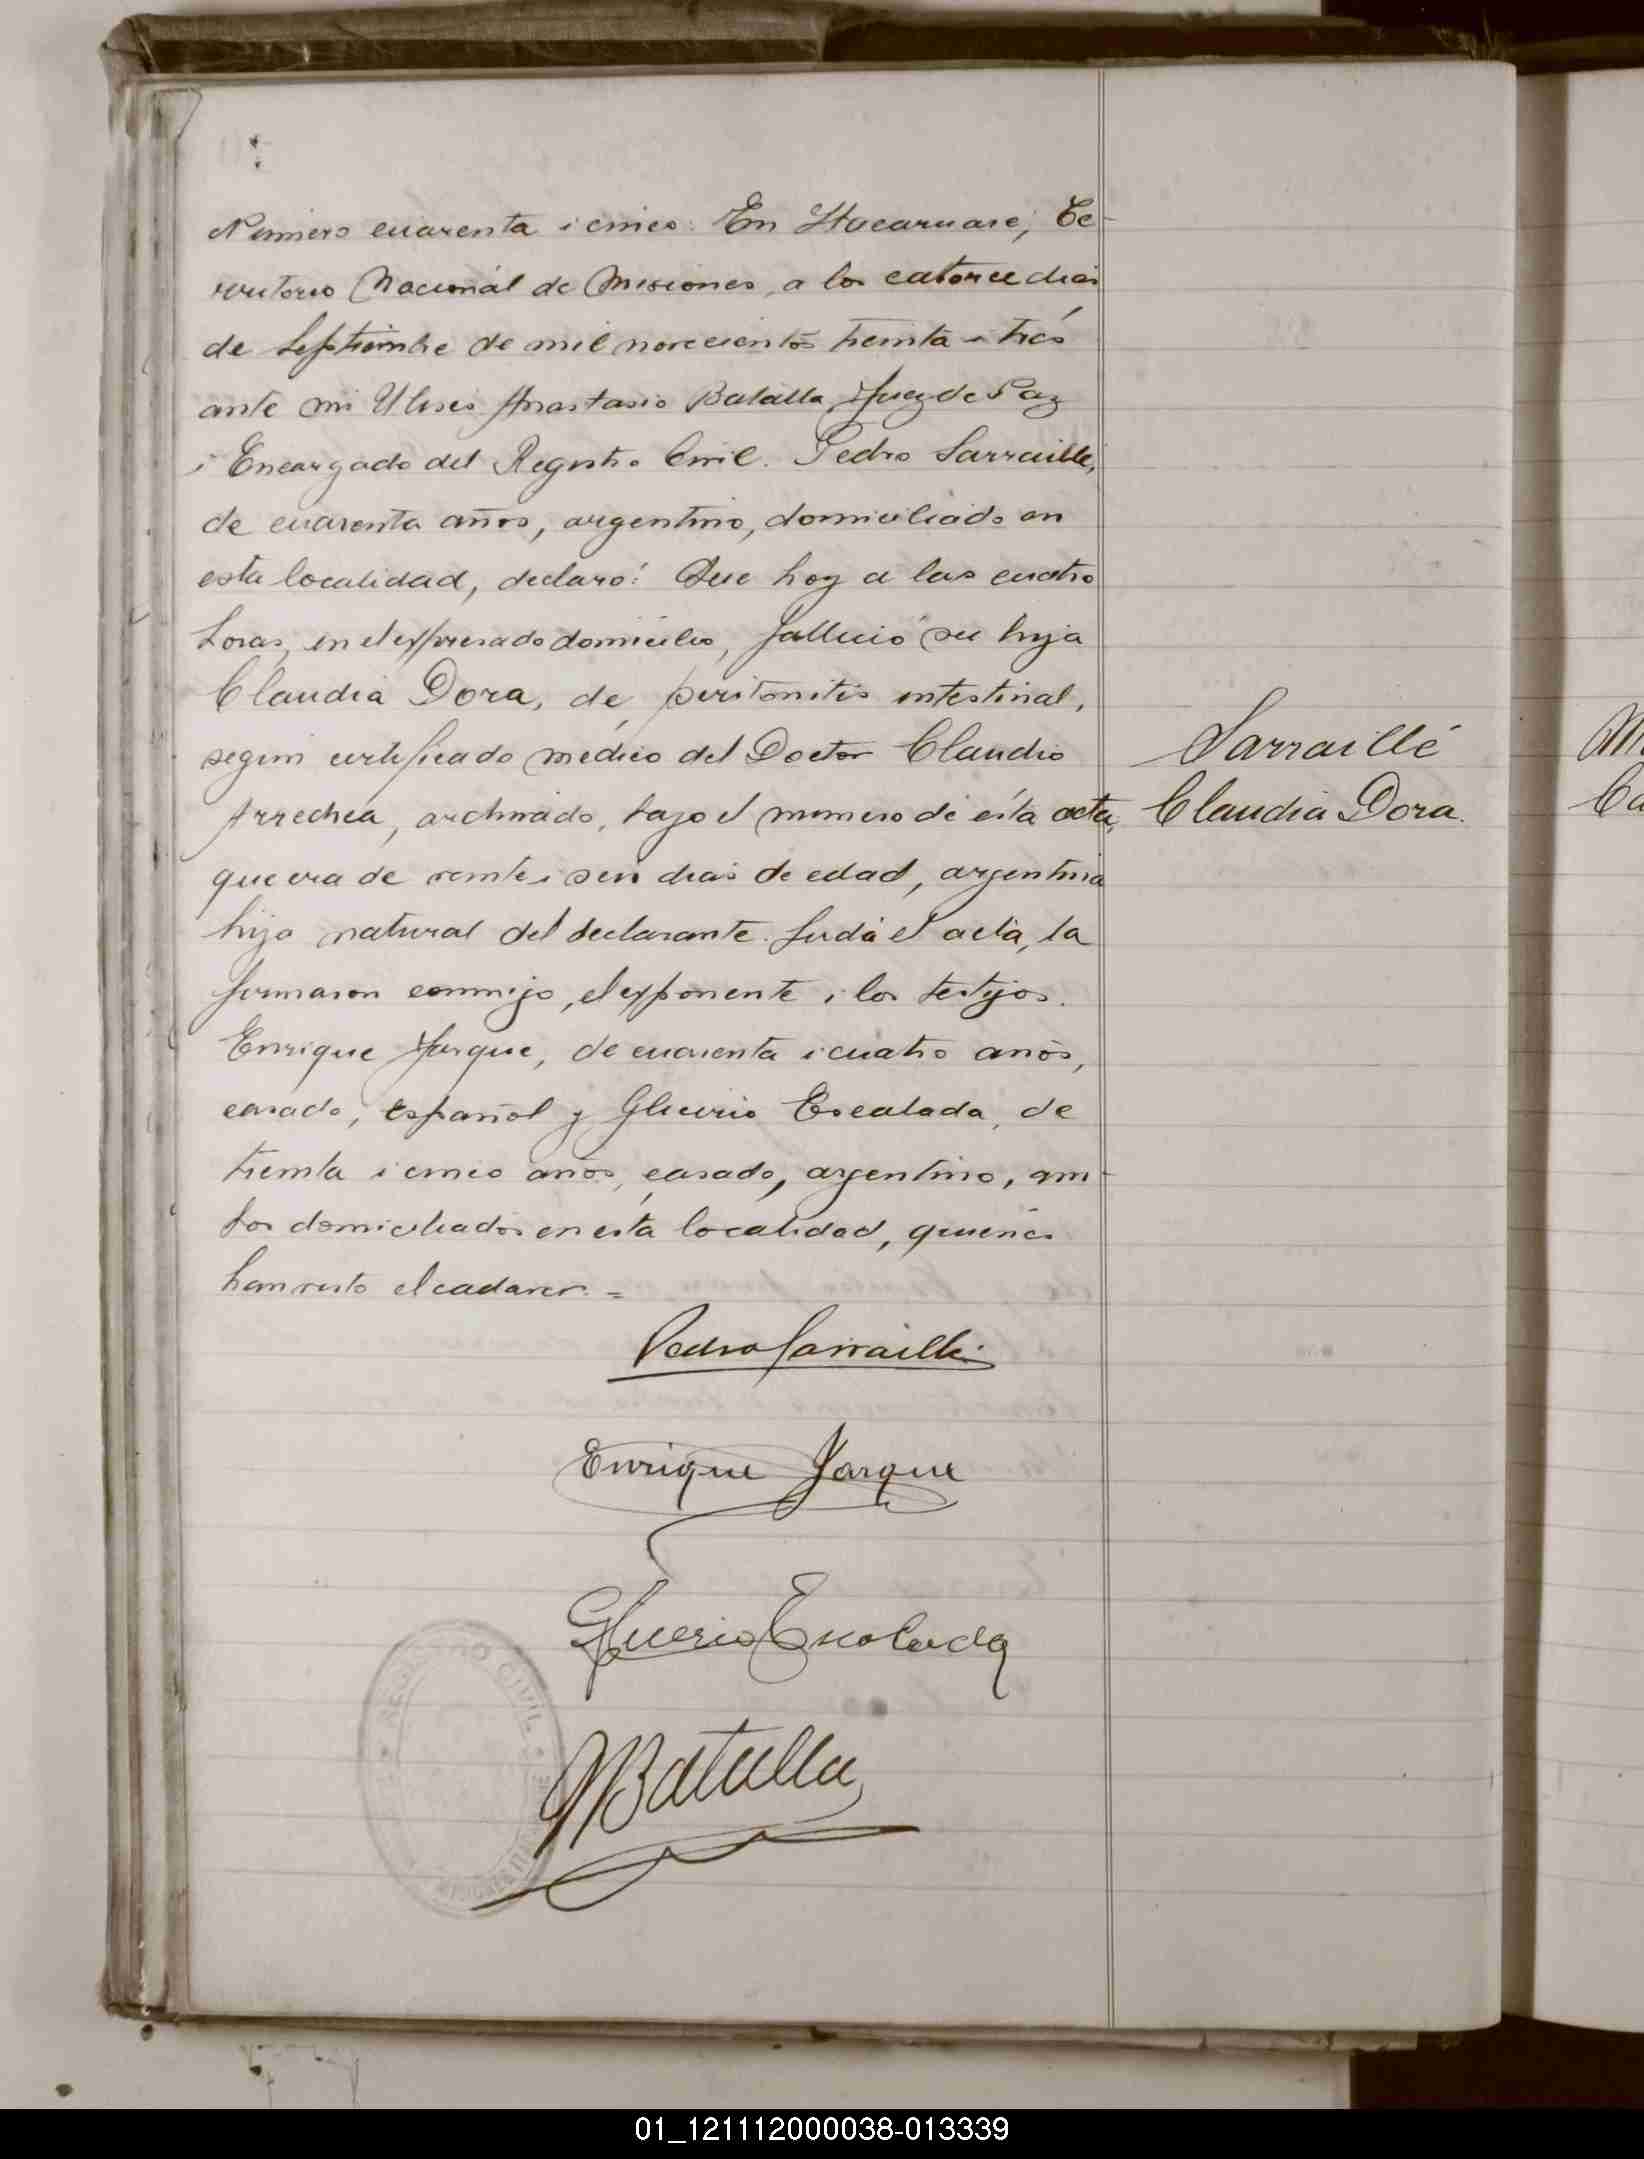 Número cuarenta i cinco: En Itacaruaré, Te-
rritorio Nacional de Misiones, a los catorce dias
de Septiembre de mil novecientos treinta i trés
ante mi Ulises Anastasio Batalla Juez de Paz
i Encargado del Registro Civil. Pedro Sarraillé,
de cuarenta años, argentino, domiciliado en
esta localidad, declaró: Que hoy a las cuatro
horas, en el expresado domicilio, falleció su hija
Claudia Dora, de peritonitis intestinal,
según certificado médico del Doctor Claudio
Arrechea, archivado, bajo el número de ésta acta,
que era de veinte i seis dias de edad, argentina
hija natural del declarante. Leida el acta, la
firmaron conmigo, el exponente i los testigos.
Enrique Jarque, de cuarenta i cuatro años,
casado, español y Glicerio Escalada, de
treinta i cinco años, casado, argentino, am-
bos domiciliados en esta localidad, quienes
han visto el cadaver. =
Sarraillé
Claudia Dora.
Pedro Sarraillé
Enrique Jarque
Glicerio Escalada
Batalla
REGISTRO CIVIL
01_121112000038-013339